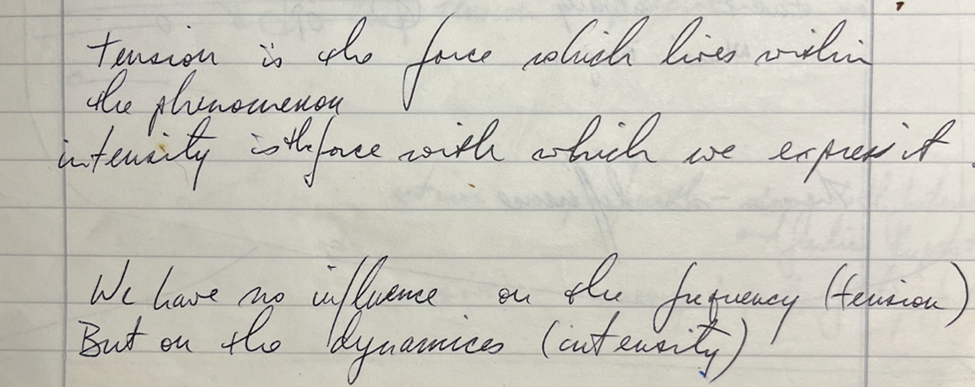 tension is the force which lives within
the phenomenon
intensity is the force with which we express it.
We have no influence on the frequency (tension)
But on the dynamics (intensity)